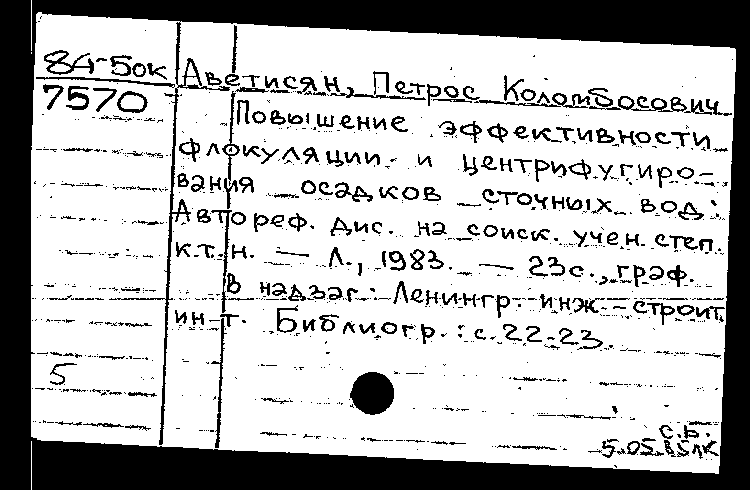 84-5ок Аветисян, Петрос Коломбосович
7570 Повышение эффективности
флокуляции и центрифугиро-
вания осадков сточных вод:
Автореф. дис. на соиск. учен. степ.
к.т.н. — Л., 1983. — 23с., граф.
В надзаг.: Ленингр. инж.-строит.
ин-т. Библиогр.: с. 22-23.
5
С.Б.
5.05.85 ЛК